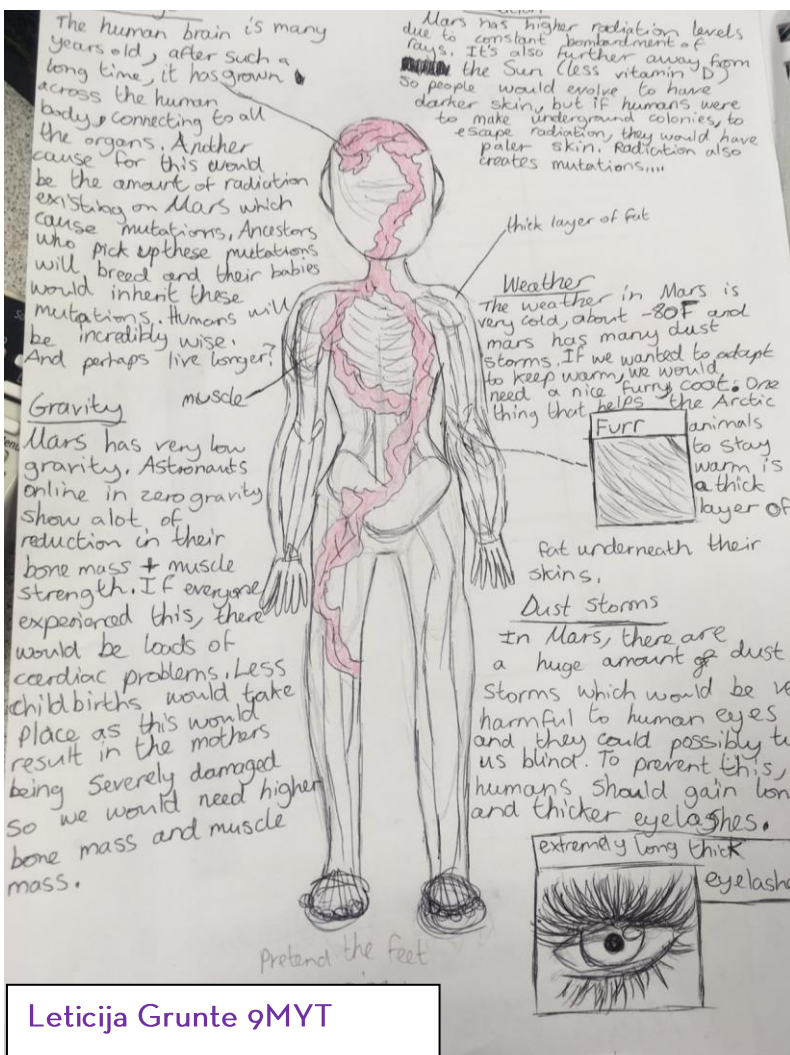 The human brain is many
years old, after such a
long time, it has grown
across the human
body, connecting to all
the organs. Another
cause for this would
be the amount of radiation
existing on Mars which
cause mutations, Ancestors
who pick up these mutations
will breed and their babies
would inherit these
mutations. Humans will
be incredibly wise.
And perhaps live longer?
muscle
Gravity
Mars has very low
gravity. Astronauts
online in zero gravity
show a lot of
reduction in their
bone mass + muscle
strength. If everyone
experienced this, there
would be loads of
cardiac problems. Less
childbirths would take
place as this would
result in the mothers
being severely damaged
So we would need higher
bone mass and muscle
mass.
Mars has higher radiation levels
due to constant bombardment of
rays. It's also further away from
the Sun (less vitamin D)
So people would evolve to have
darker skin, but if humans were
to make underground colonies, to
escape radiation, they would have
paler skin. Radiation also
creates mutations....
thick layer of fat
Weather
The weather in Mars is
very cold, about -80F and
mars has many dust
storms. If we wanted to adapt
to keep warm, we would
need a nice furry coat. One
thing that helps the Arctic
Furr
animals
to stay
warm is
a thick
layer of
fat underneath their
skins.
Dust storms
In Mars, there are
a huge amount of dust
storms which would be
harmful to human eyes
and they could possibly
us blind. To prevent this,
humans should gain
and thicker eyelashes.
extremely long thick
Pretend the feet
Leticija Grunte 9MYT